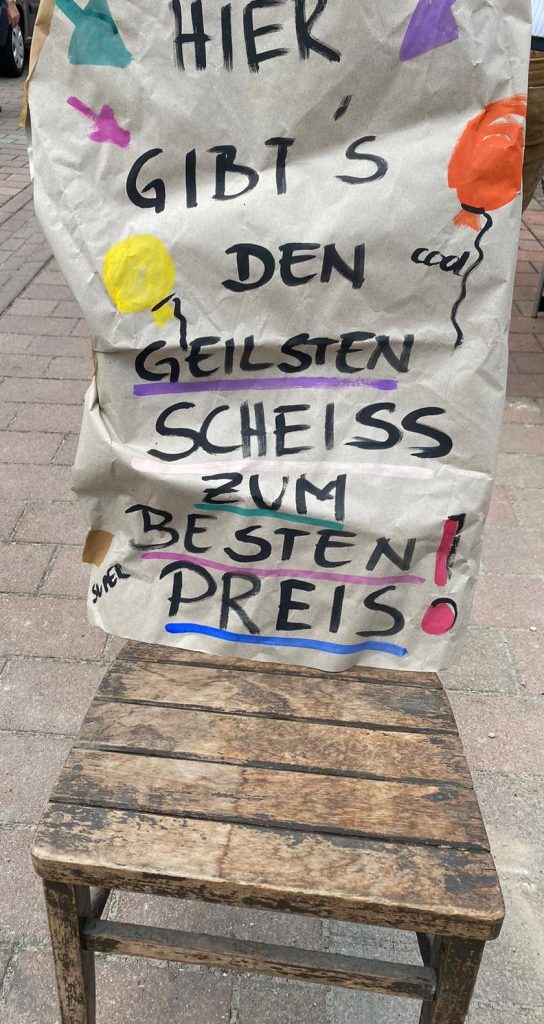 HIER
GIBT'S
DEN
cool
GEILSTEN
SCHEISS
ZUM
BESTEN
SUPER
PREIS!